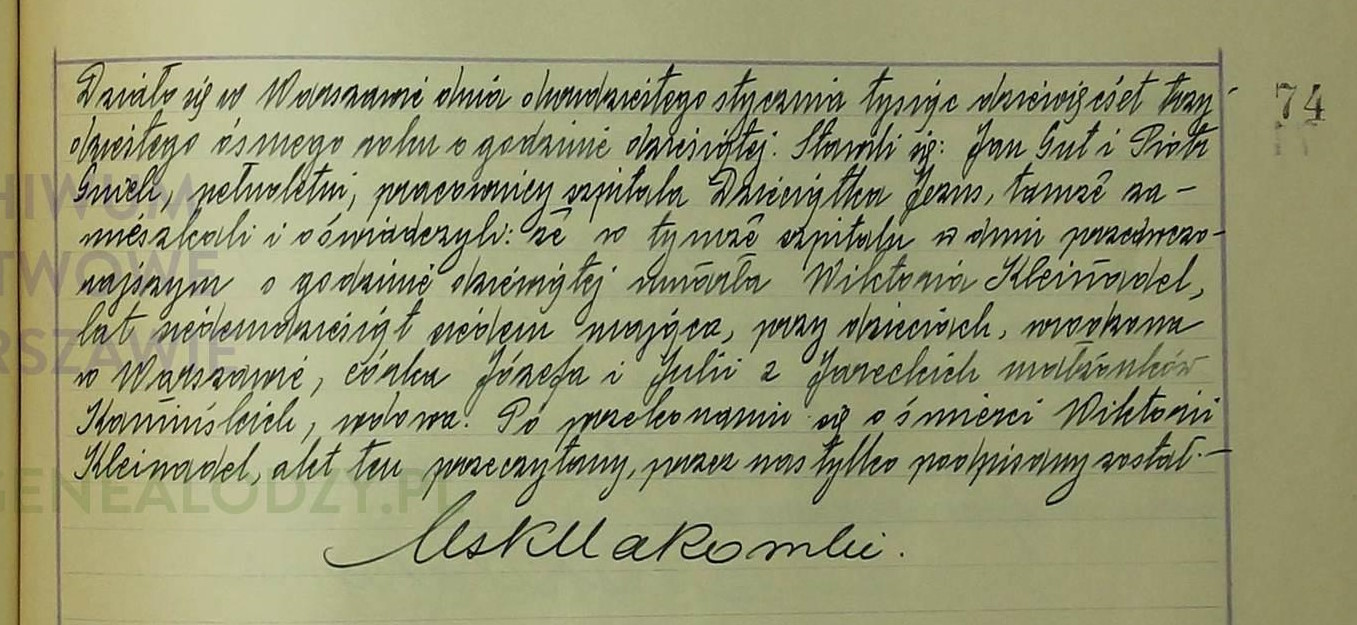 Działo się w Warszawie dnia dwudziestego stycznia tysiąc dziewięćset trzy-
dziestego ósmego roku o godzinie dziesiątej. Stawili się: Jan Gut i Piotr
pełnoletni, pracownicy szpitala Dzieciątka Jezus, tamże za-
mieszkali i oświadczyli: że w tymże szpitalu w dniu przedwczo-
rajszym o godzinie dziewiątej umarła Wiktoria Kleinadel,
lat siedemdziesiąt siedem mająca, przy dzieciach, urodzona
w Warszawie, córka Józefa i Julii z Jareckich małżonków
Kamińskich, wdowa. Po przekonaniu się o śmierci Wiktorii
Kleinadel, akt ten przeczytany, przez nas tylko podpisany został.-
74
ARCHIWUM
PAŃSTWOWE
WARSZAWIE
GENEALODZY.PL